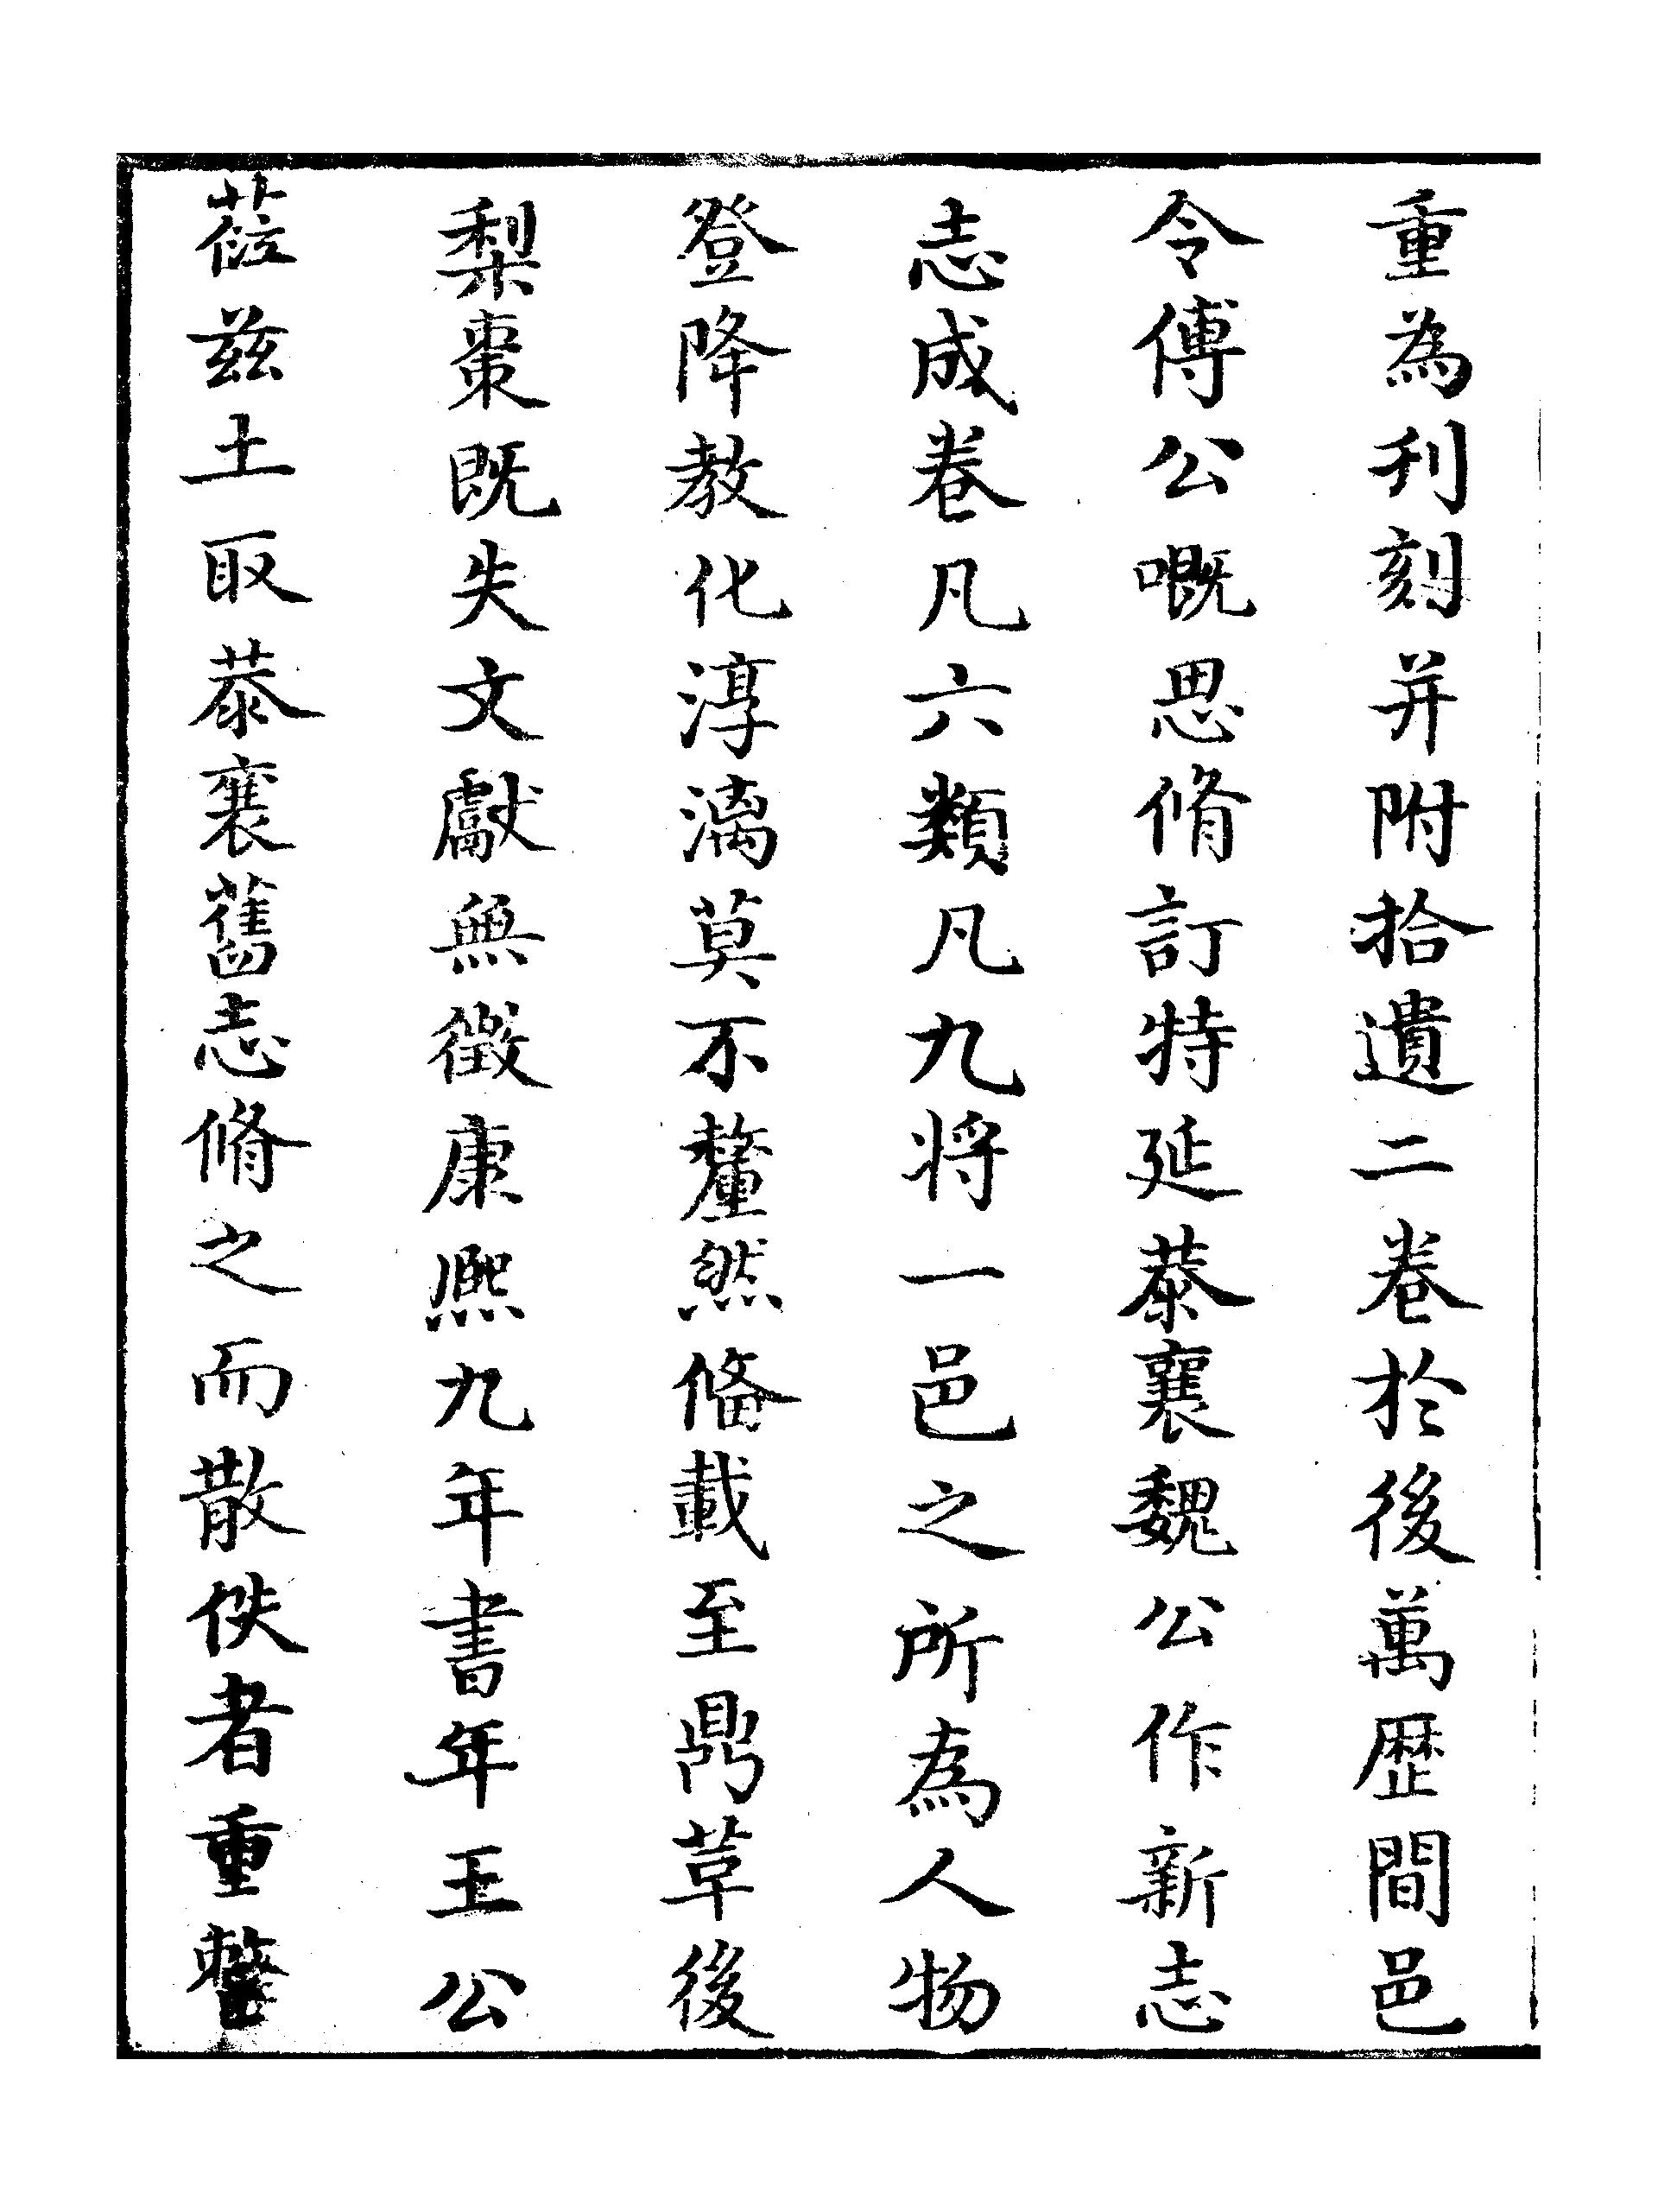 重為刋刻并附拾遺二卷於後萬歴間邑
令傅公嘅思脩訂特延㳟襄魏公作新志
志成卷凡六類凡九将一邑之所為人物
登降教化淳漓莫不釐然偹載至鼎革後
梨棗既失文獻無徵康熙九年書年王公
蒞兹土取㳟襄舊志脩之而散佚者重整